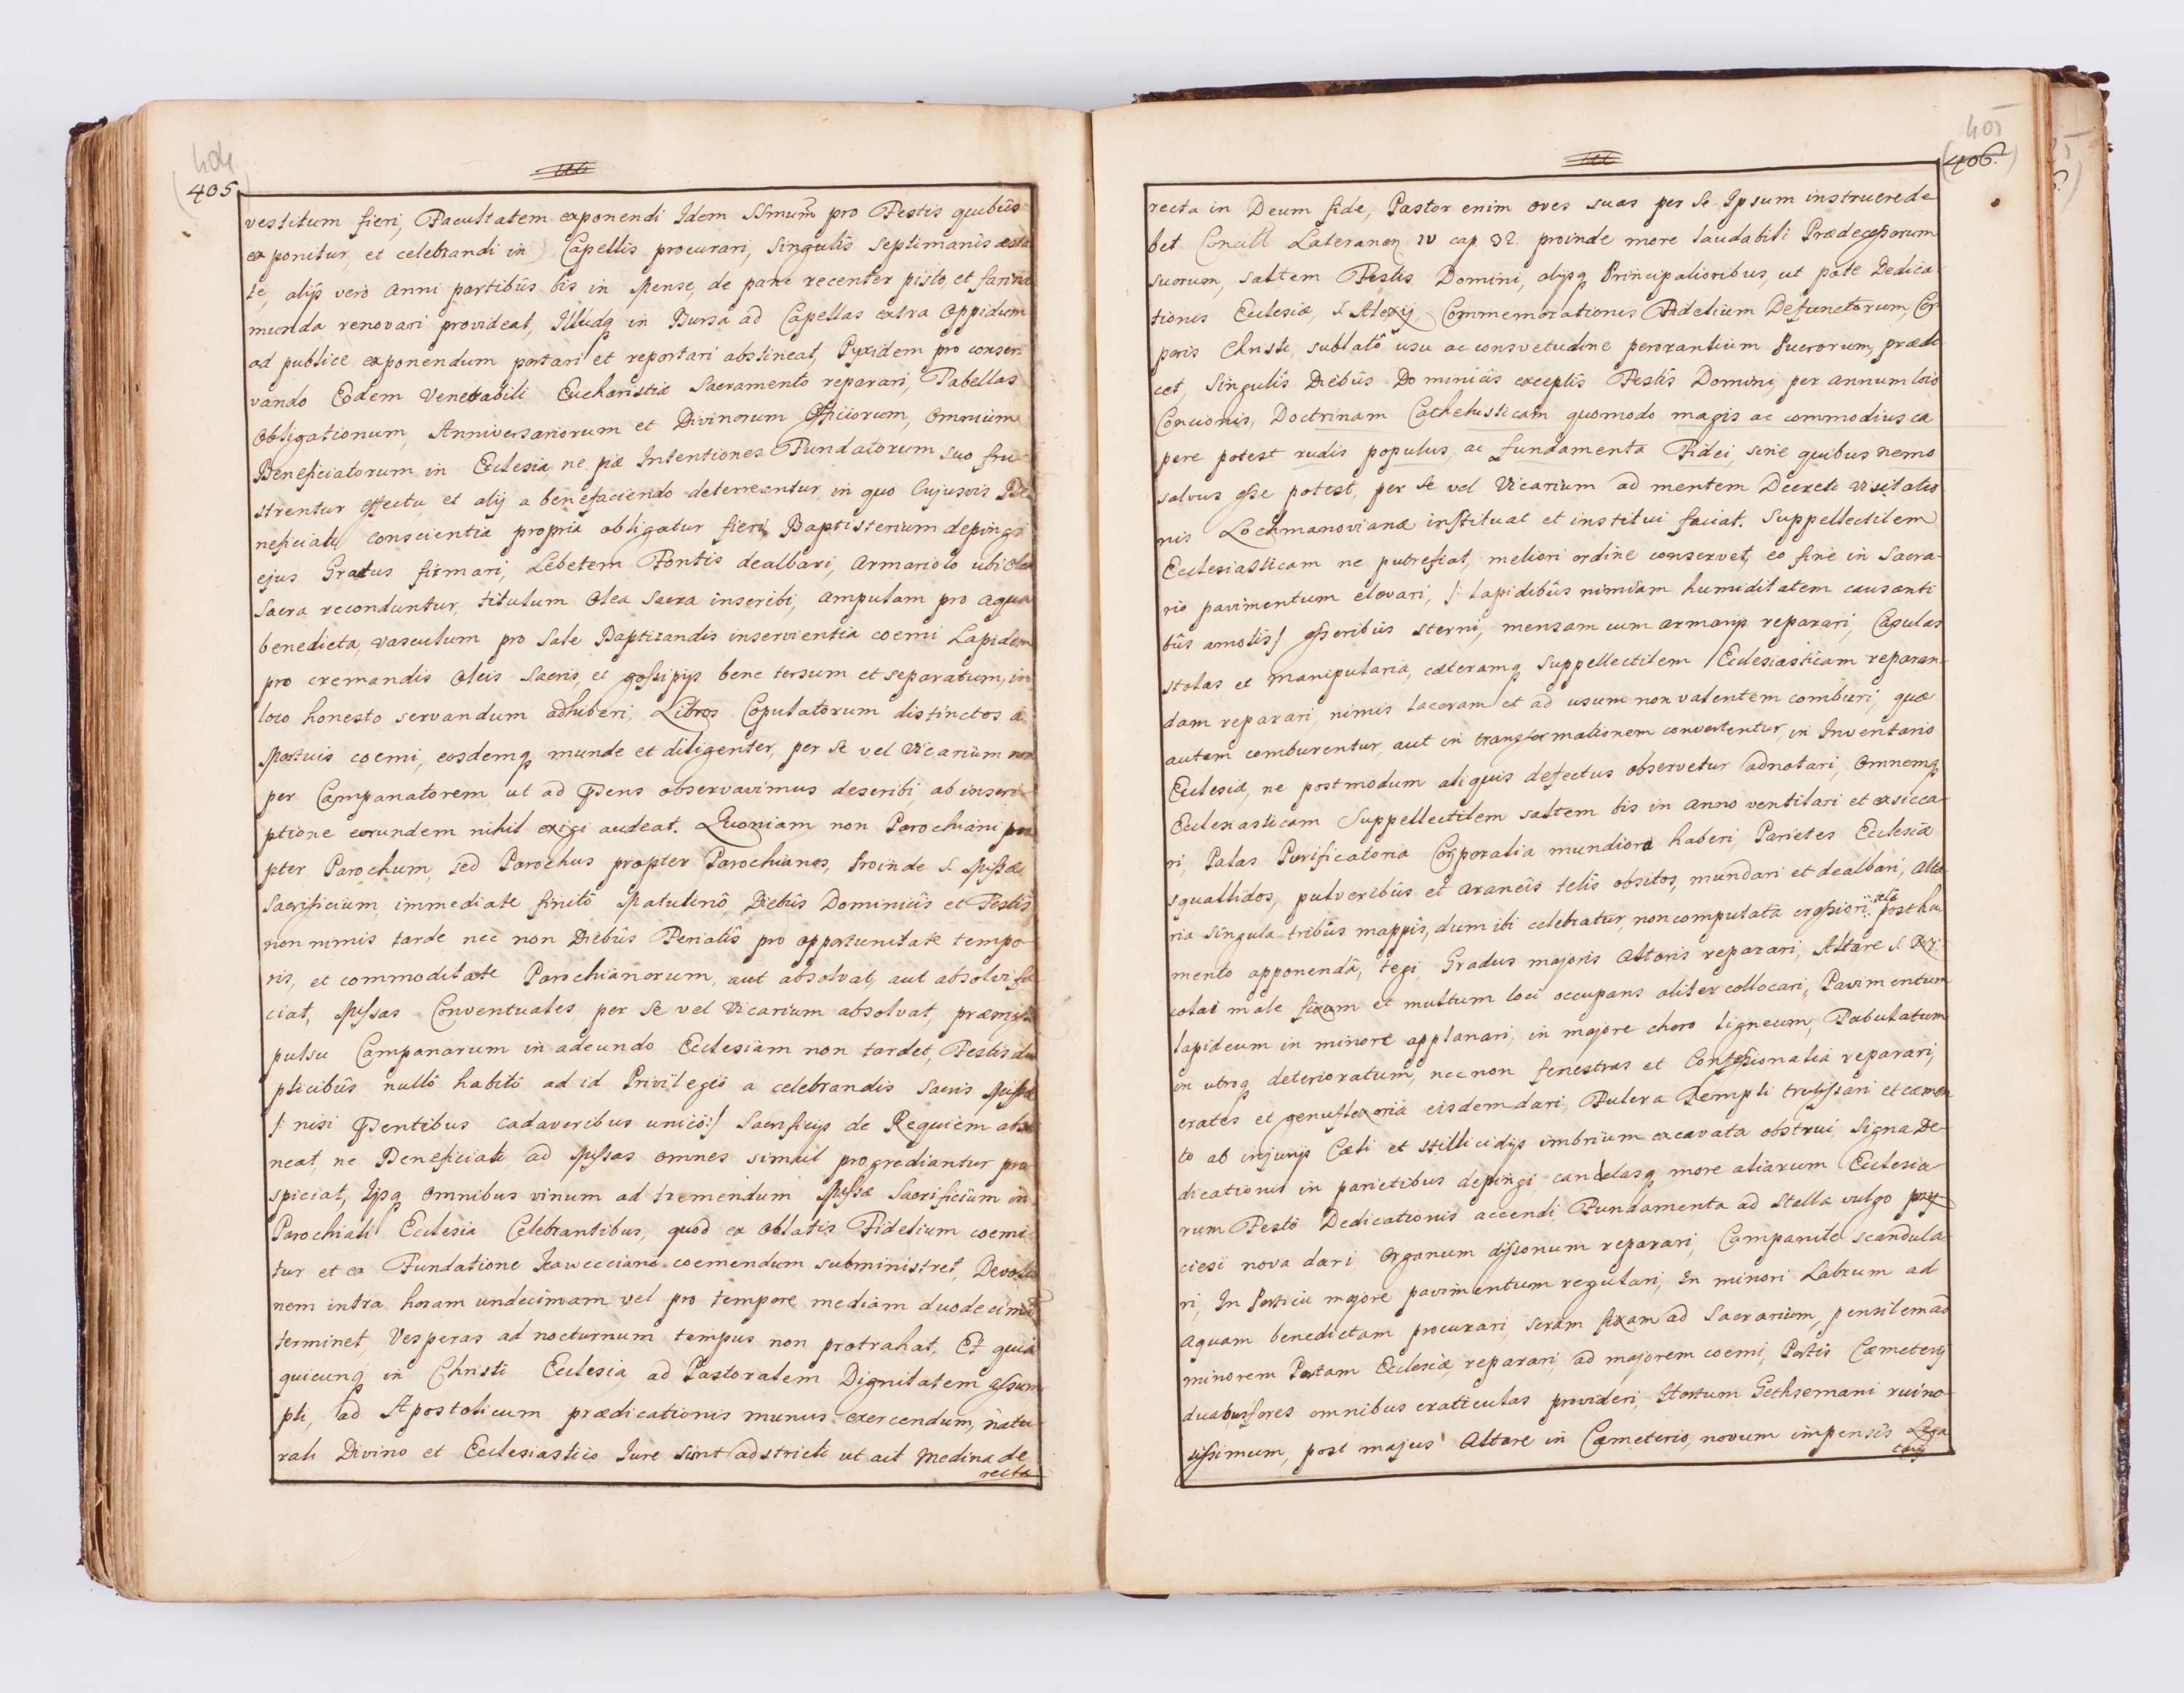 404
405
vestitum fieri, Facultatem exponendi Idem SSmum pro Festis quibus
exponitur, et celebrandi in Capellis procurari, singulis septimanis æsta
te, alijs vero Anni partibûs bis in Mense, de pane recenter pisto, et farina
munda renovari provideat, Illudq in Bursa ad Capellas extra Oppidum
ad publice exponendum portari et reportari abstineat, Pyxidem pro conser
vando Eodem Venerabili Eucharistiæ Sacramento reparari, Tabellas
Obligationum, Anniversariorum et Divinorum Officiorum, Omnium
Beneficiatorum in Ecclesia, ne piæ Intentiones Fundatorum suo fru-
strentur effectu, et alij a benefaciendo deterreantur, in quo Cujusvis Be
neficiati conscientia propria obligatur fieri, Baptisterium depingi
ejus Gradus firmari, Lebetem Fontis dealbari, Armariolo ubi Olea
Sacra reconduntur, titulum Olea Sacra inseribi, ampulam pro aqua
benedicta, vasculum pro Sale Baptizandis inservientia coemi Lapidem
pro cremandis Oleis Sacris, et gossipijs bene tersum et separatum, in
loco honesto servandum adhiberi, Libros Copulatorum distinctos a
Mortuis coemi, eosdemq munde et diligenter, per Se vel Vicarium non
per Campanatorem, ut ad Præsens observavimus describi, ab inseri-
ptione eorundem nihil exigi audeat. Quoniam non Parochiani pro
pter Parochum, sed Parochus propter Parochianos, Proinde S. Missæ
Sacrificium immediate finitô Matutinô, Diebûs Dominicîs et Festîs
non nimis tarde nec non Diebûs Ferialîs pro opportunitate tempo-
ris, et commoditate Parochianorum, aut absolvat, aut absolvi fa
ciat, Missas Conventuales per Se vel Vicarium absolvat, præmisso
pulsu Campanarum in adeundo Ecclesiam non tardet, Festis du
plicibûs nullô habitô ad id Privilegiô a celebrandis Sacris Missæ
/: nisi Præsentibus cadaveribus unicô:/ Sacrificijs de Requiem absti
neat, ne Beneficiati ad Missas omnes simul progrediantur pro
spiciat, Ijsq omnibus vinum ad tremendum Missæ Sacrificium in
Parochiali Ecclesia Celebrantibus, quod ex Oblatis Fidelium coemi-
tur et ex Fundatione coemendum subministret, Devotio
nem intra horam undecimam vel pro tempore mediam duodecimam
terminet, Vesperas ad nocturnum tempus non protrahat. Et quia
quicunq in Christi Ecclesia ad Pastoralem Dignitatem assum
pti, ad Apostolicum prædicationis munus exercendum, natu-
rali Divino et Ecclesiastico Jure sint adstricti ut ait Medina de
recta
405
406.
recta in Deum fide, Pastor enim oves suas per Se Ipsum instruere de
bet Concill Lateranen IV cap. 32. proinde more laudabili Prædecessorum
suorum, saltem Festis Domini, alijsq Principalioribus, ut pote Dedica-
tionis Ecclesiæ, S Alexij, Commemorationis Fidelium Defunctorum, Cor
poris Christi, sublatô usu ac consvetudine perorantium Puerorum, prædi
cet, Singulîs Diebûs Dominicîs exceptîs Festîs Domini, per annum loco
Concionis, Doctrinam Cathehisticam quomodo magis ac commodius ca
pere potest rudis populus, ac fundamenta Fidei, sine quibus nemo
salvus esse potest, per Se vel Vicarium ad mentem Decreti Visitatio
nis Lochmanovianæ instituat et institui faciat. Suppellectilem
Ecclesiasticam ne putrefiat, meliori ordine conservet, eo fine in Sacra-
rio pavimentum elevari, /: lapidibûs nimiam humiditatem causanti
bûs amotis/ asseribûs sterni, mensam cum armarijs reparari, Casulas
stolas et manipularia, cæteramq Suppellectilem Ecclesiasticam reparan-
dam reparari, nimis laceram et ad usum non valentem comburi, quæ
autem comburentur, aut in transformationem convertentur, in Inventario
Ecclesiæ, ne postmodum aliquis defectus observetur adnotari, Omnemq
Ecclesiasticam Suppellectilem saltem bis in anno ventilari et exsicca-
ri, Palas Purificatoria Corporalia mundiora haberi, Parietes Ecclesiæ
squallidos, pulveribûs et araneîs telîs obsitos, mundari et dealbari, Alta
ria singula tribûs mappîs, dum ibi celebratur, non computatâ crassiori telâ post hu
mento apponendâ, tegi, Gradus majoris Altaris reparari, Altare S.
colai male fixam et multum loci occupans aliter collocari, Pavimentum
lapideum in minore applanari, in majore choro ligneum, Tabulatum
in utroq deterioratum, necnon fenestras et Confessionalia reparari,
crates et genuflexoria eisdem dari, Fulcra Templi trulissari et cæmen
to ab injurijs Cæli et stillicidijs imbrium excavata obstrui, Signa De-
dicationis in parietibus depingi, candelasq more aliarum Ecclesia-
rum Festô Dedicationis accendi, Fundamenta ad Stalla vulgo przy
ciesi nova dari Organum dissonum reparari, Campanile scandula
ri, In Porticu majore pavimentum regulari, In minori Labrum ad
aquam benedictam procurari, seram fixam ad Sacrarium, pensilem ad
minorem Portam Ecclesiæ, reparari, ad majorem coemi, Portis Cæmeterij
duabus fores omnibus craticulas provideri, Hortum Gethsemani ruino-
sissimum, post majus Altare in Cæmeterio, novum impensis Lega
torij